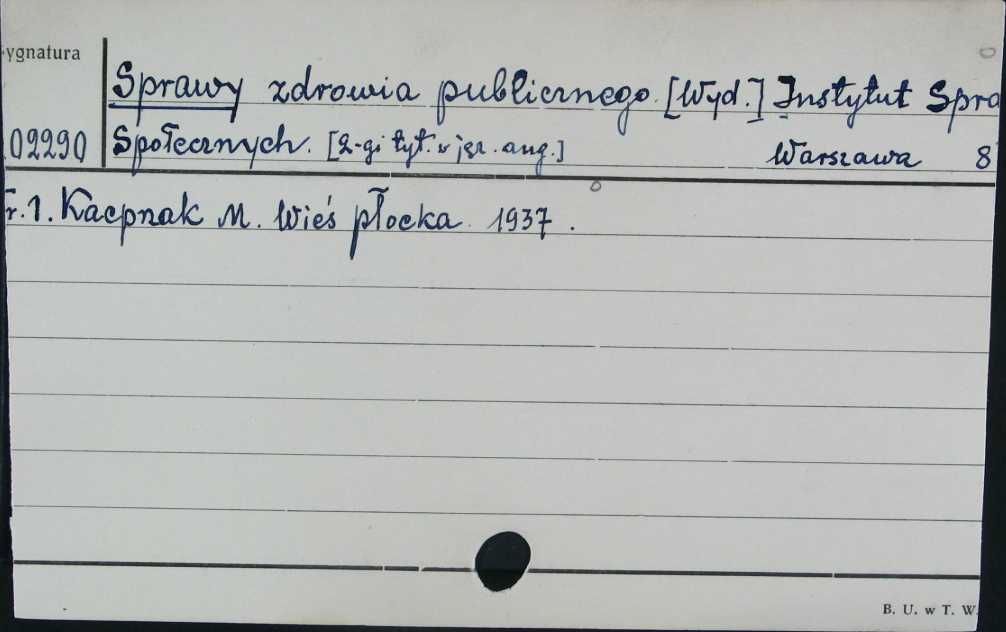 ygnatura
Sprawy zdrowia publicznego. [Wyd.] Instytut Spra
02290 Społecznych. [2-gi tyt. w jęz. ang.] Warszawa 8
r. 1. Kacprzak M. Wieś płocka. 1937.
B. U. w T. W.